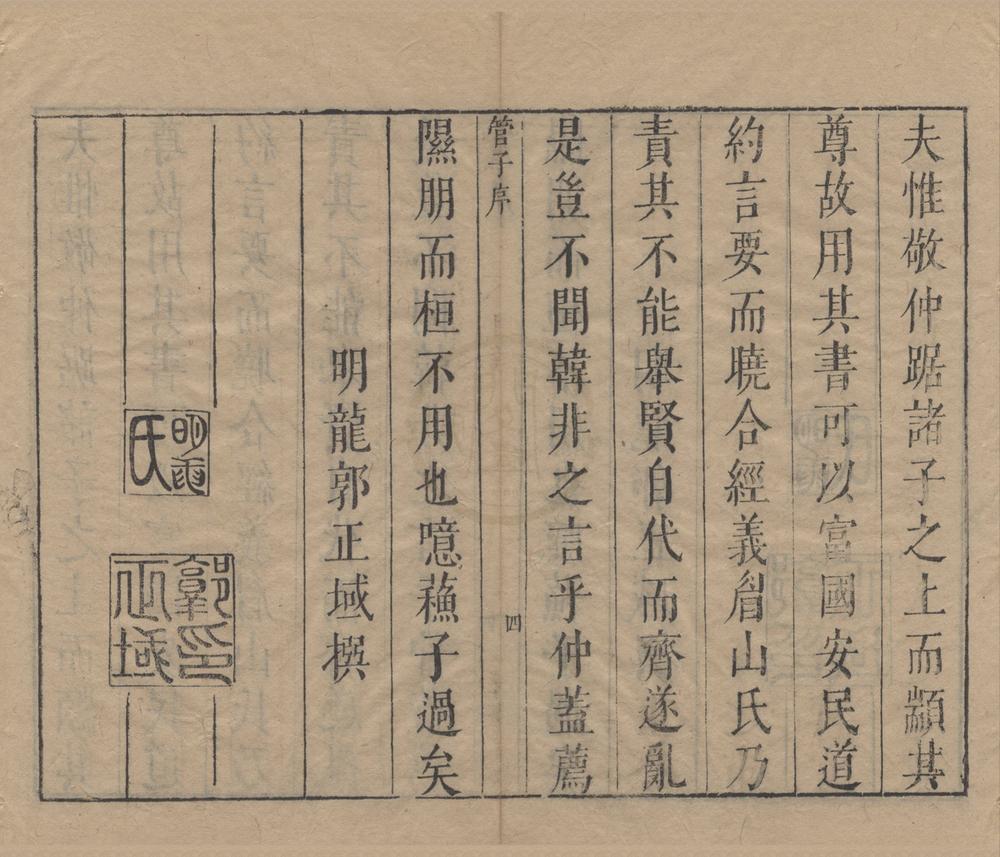 夫惟敬仲踞諸子之上而顓其
尊故用其書可以富國安民道
約言要而曉合經義眉山氏乃
責其不能舉賢自代而齊遂亂
是豈不聞韓非之言乎仲蓋薦
管子序
四
隰朋而桓不用也噫蘓子過矣
明龍郭正域撰
明龍
氏
郭印
正域